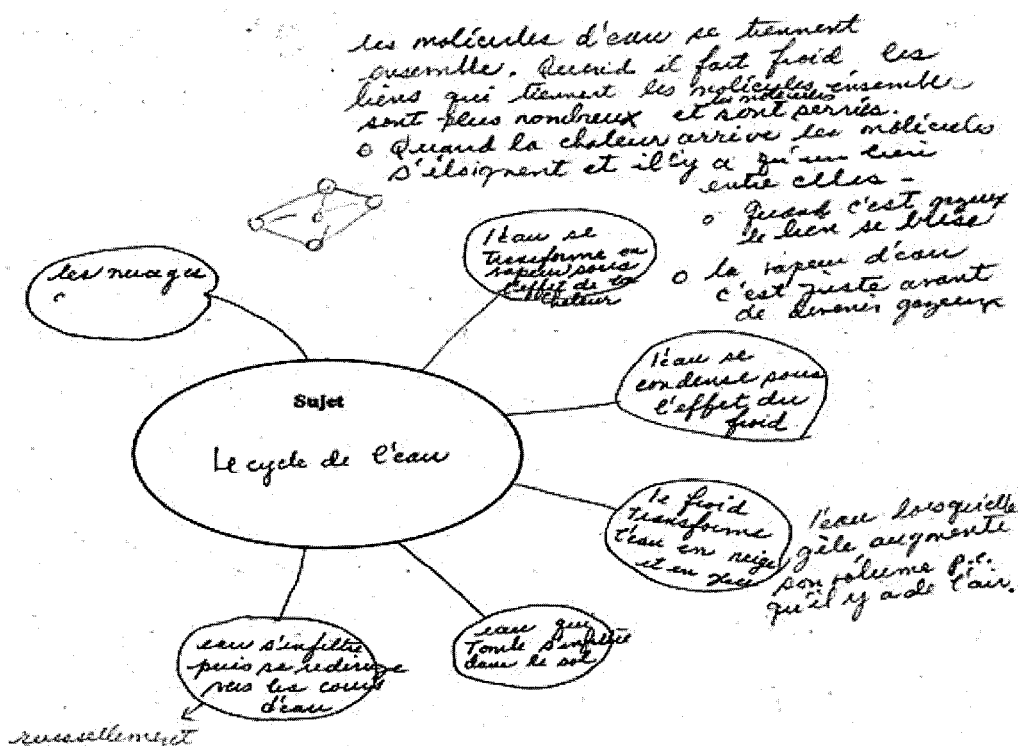 les molécules d'eau se tiennent
ensemble. Quand il fait froid les
liens qui tiennent les molécules ensemble
sont plus nombreux et les molécules sont serrés.
o Quand la chaleur arrive les molécules
s'éloignent et il y a qu'un lien
entre elles -
o Quand c'est gazeux
le lien se brise
o la vapeur d'eau
c'est juste avant
de devenir gazeux
les nuages
l'eau se
transforme en
vapeur sous
l'effet de la
chaleur
l'eau se
condense sous
l'effet du
froid
Sujet
Le cycle de l'eau
le froid
transforme
l'eau en neige
et en
l'eau lorsqu'elle
gèle, augmente
son volume p.c.
qu'il y a de l'air.
eau s'infiltre
puis se redirige
vers les cours
d'eau
eau qui
tombe s'infiltre
dans le sol
ruissellement